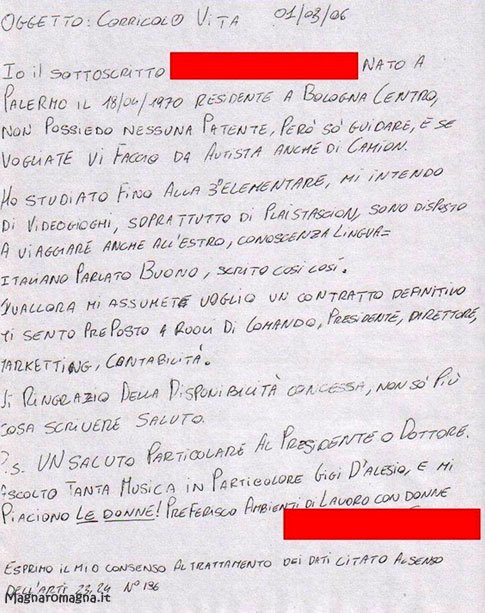 OGGETTO: CORRICOLO VITA 01/03/06
IO IL SOTTOSCRITTO NATO A
PALERMO IL 18/04/1970 RESIDENTE A BOLOGNA CENTRO,
NON POSSIEDO NESSUNA PATENTE, PERÒ SÒ GUIDARE, E SE
VOGLIATE VI FACCIO DA AUTISTA ANCHE DI CAMION.
HO STUDIATO FINO ALLA 3° ELEMENTARE, MI INTENDO
DI VIDEOGIOGHI, SOPRATTUTTO DI PLAISTASCION, SONO DISPOSTO
A VIAGGIARE ANCHE ALL'ESTRO, CONOSCENZA LINGUA=
ITALIANO PARLATO BUONO, SCRITO COSÌ COSÌ.
QUALLORA MI ASSUMETE VOGLIO UN CONTRATTO DEFINITIVO
MI SENTO PREPOSTO A RUOLI DI COMANDO, PRESIDENTE, DIRETTORE,
MARKETTING, CONTABILITÀ.
VI RINGRAZIO DELLA DISPONIBILITÀ CONCESSA, NON SÒ PIÙ
COSA SCRIVERE SALUTO.
P.S. UN SALUTO PARTICOLARE AL PRESIDENTE O DOTTORE.
ASCOLTO TANTA MUSICA IN PARTICOLORE GIGI D'ALESIO, E MI
PIACIONO LE DONNE! PREFERISCO AMBIENTI DI LAVORO CON DONNE
ESPRIMO IL MIO CONSENSO AL TRATTAMENTO DEI DATI CITATO AL SENSO
DELL'ARTI 23,24 N° 196
Magnaromagna.it